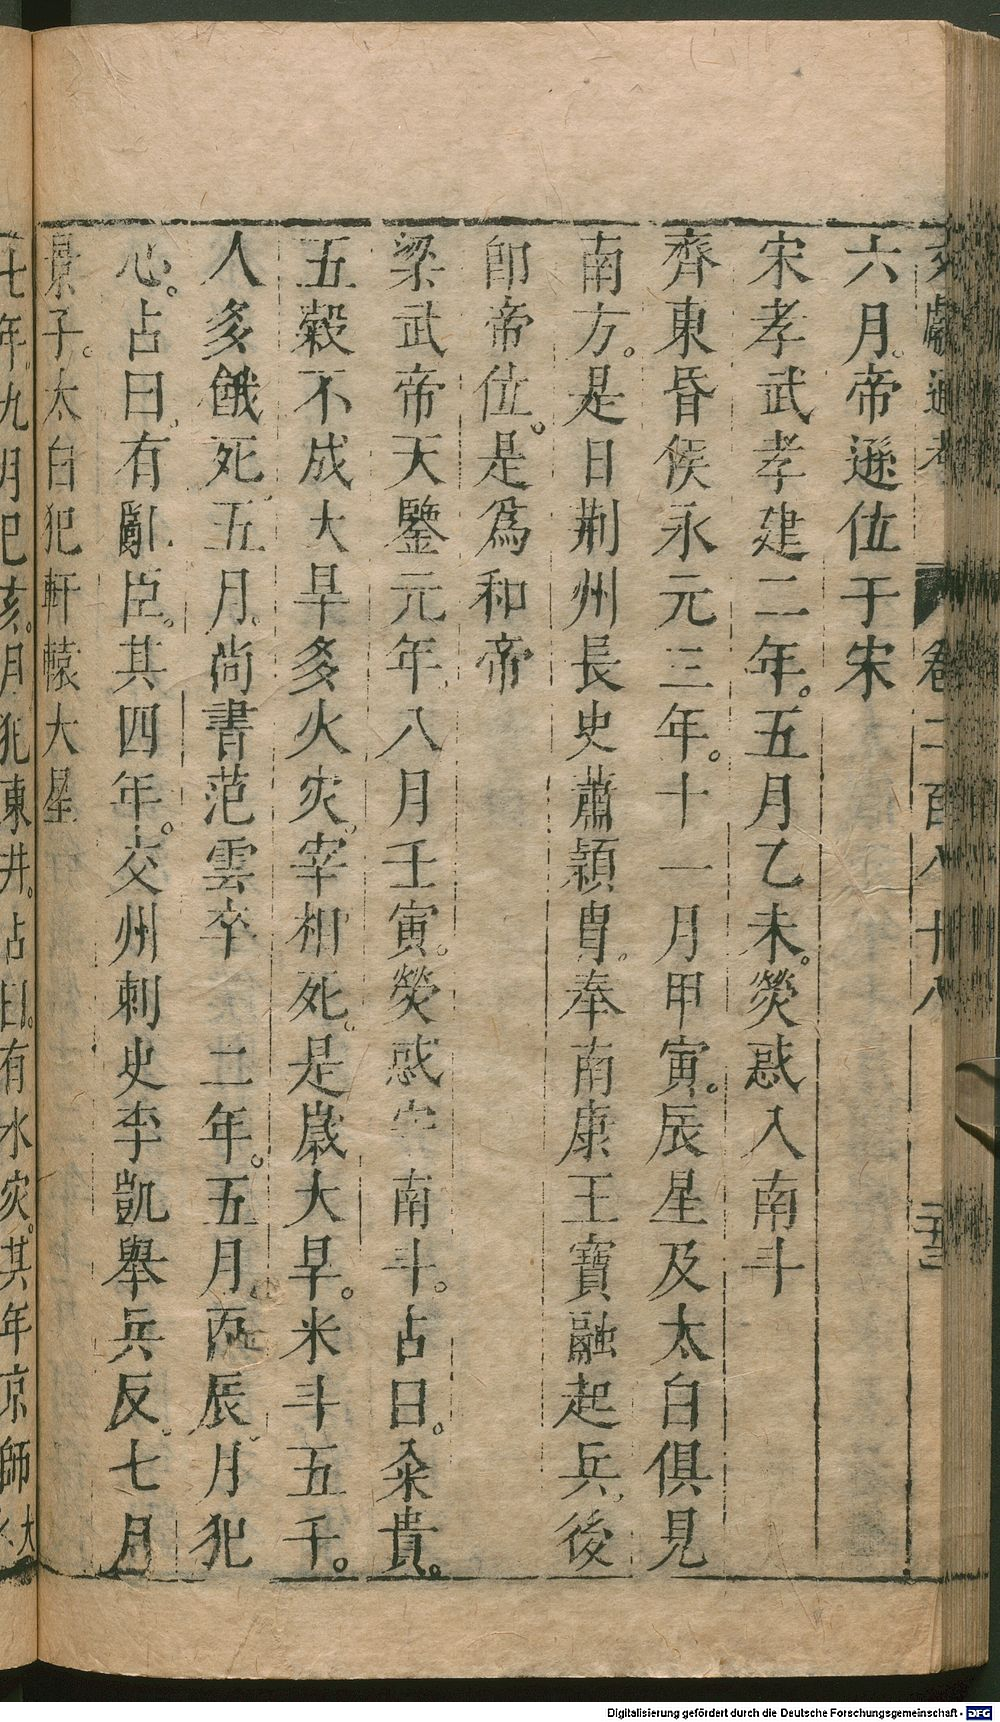 文獻通考 卷二百八十八 二十三
六月。帝遜位于宋
宋孝武孝建二年。五月乙未。熒惑入南斗
齊東昏侯永元三年。十一月甲寅。辰星及太白俱見
南方。是日荆州長史蕭頴胄。奉南康王寶融起兵。後
卽帝位。是爲和帝
梁武帝天鑒元年。八月壬寅。熒惑守南斗。占曰。籴貴。
五穀不成大旱多火災。宰相死。是歲大旱。米斗五千。
人多餓死五月。尚書范雲卒 二年。五月。丙辰。月犯
心。占曰。有亂臣。其四年。交州刺史李凱舉兵反。七月
景子。太白犯軒轅大星
七年。九月巳亥。月犯東井。占曰。有水災。其年京師大
Digitalisierung gefördert durch die Deutsche Forschungsgemeinschaft - DFG